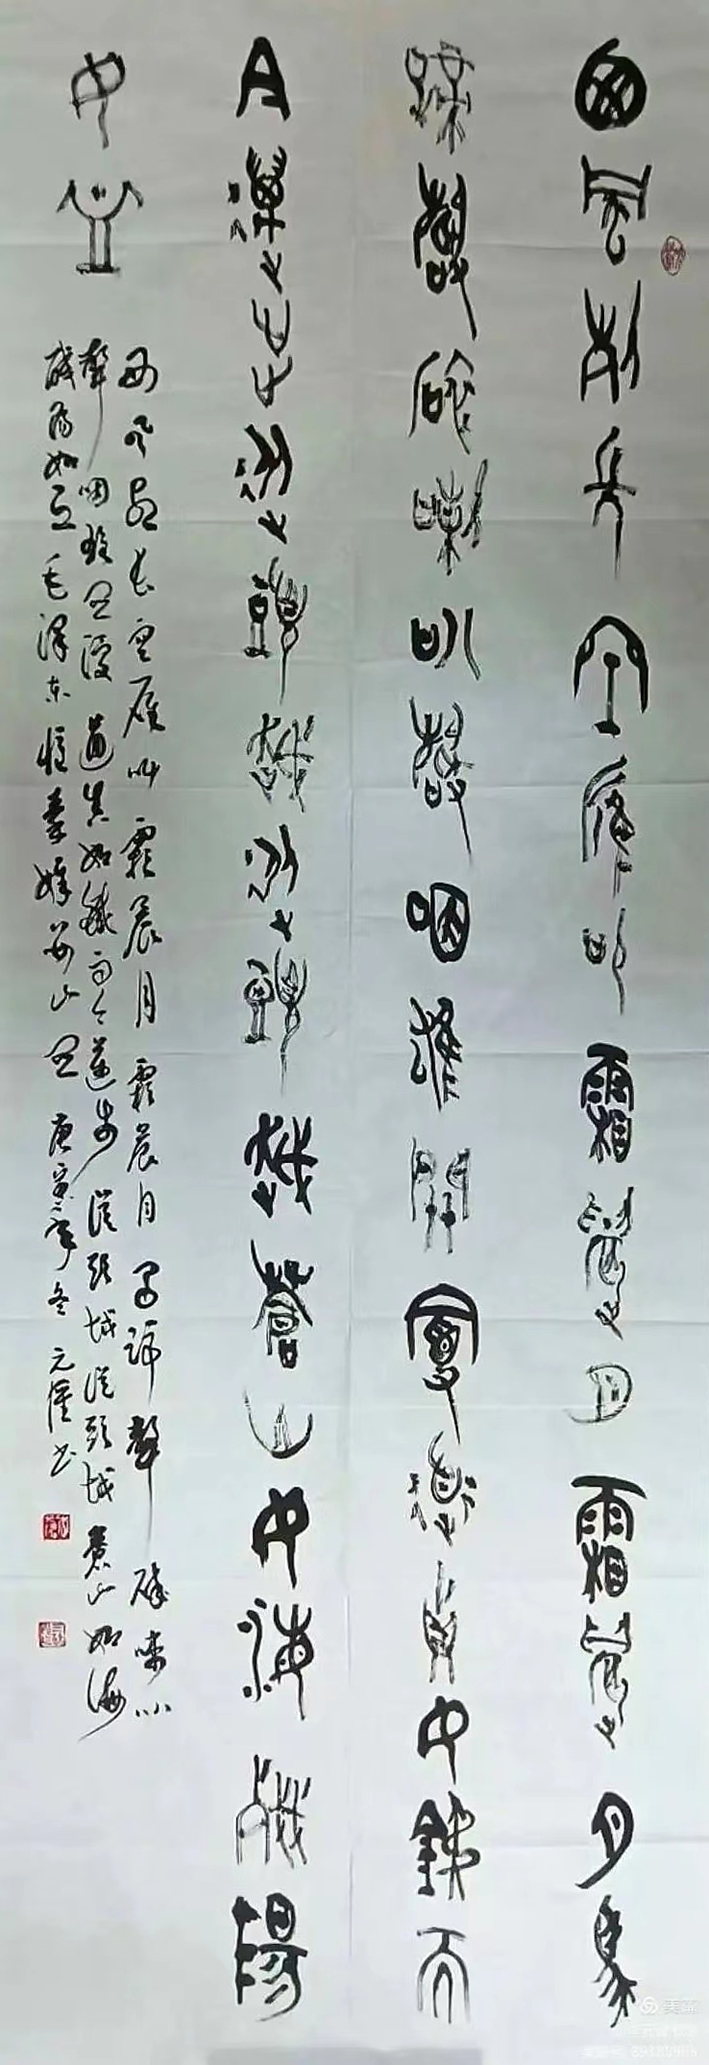 西風烈長空雁叫霜晨月霜晨月馬
蹄聲碎喇叭聲咽雄關漫道真如鐵而
今邁步從頭越從頭越蒼山如海殘陽
如血
西風烈長空雁叫霜晨月霜晨月馬蹄聲碎喇叭
聲咽雄關漫道真如鐵而今邁步從頭越從頭越蒼山如海
殘陽如血毛澤東憶秦娥婁山關庚寅年冬元
美篇